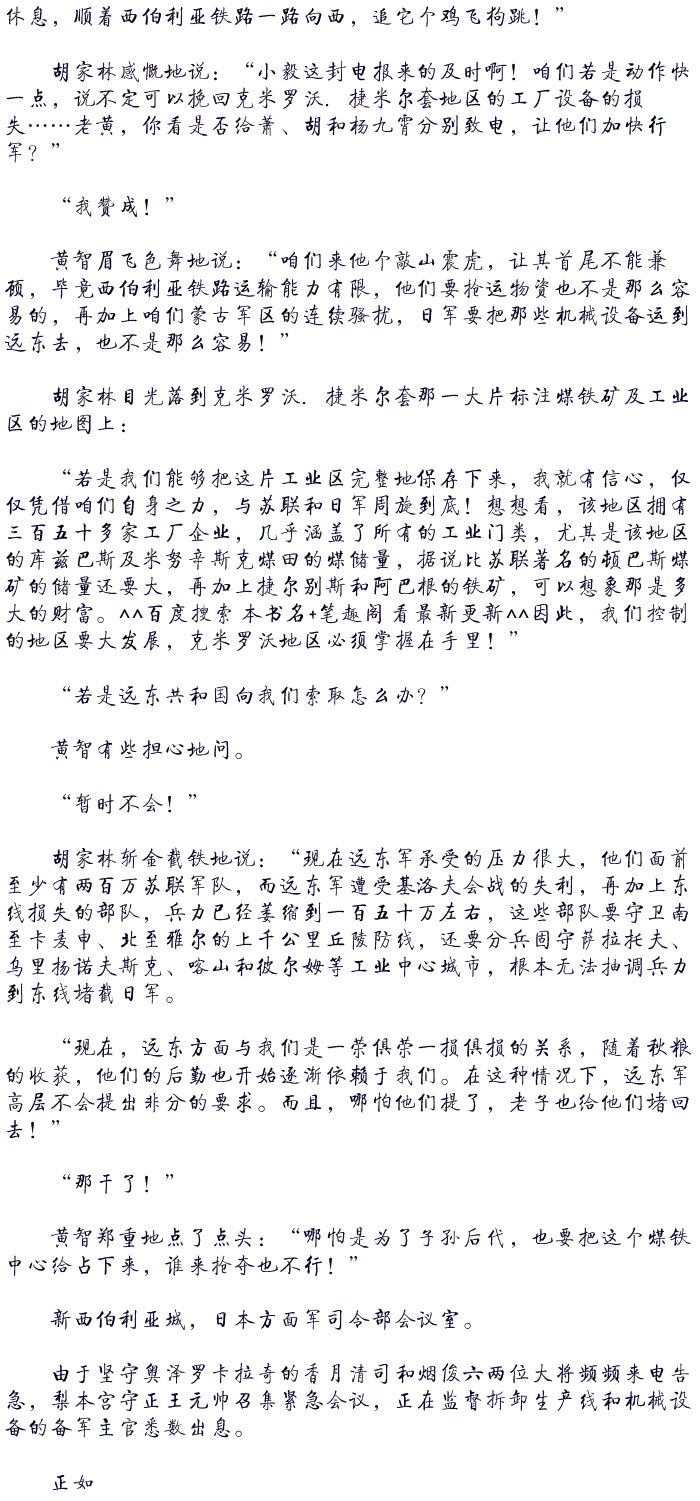 休息，顺着西伯利亚铁路一路向西，追它个鸡飞狗跳！”
胡家林感慨地说：“小毅这封电报来的及时啊！咱们若是动作快
一点，说不定可以挽回克米罗沃．捷米尔套地区的工厂设备的损
失……老黄，你看是否给萧、胡和杨九霄分别致电，让他们加快行
军？”
“我赞成！”
黄智眉飞色舞地说：“咱们来他个敲山震虎，让其首尾不能兼
顾，毕竟西伯利亚铁路运输能力有限，他们要抢运物资也不是那么容
易的，再加上咱们蒙古军区的连续骚扰，日军要把那些机械设备运到
远东去，也不是那么容易！”
胡家林目光落到克米罗沃．捷米尔套那一大片标注煤铁矿及工业
区的地图上：
“若是我们能够把这片工业区完整地保存下来，我就有信心，仅
仅凭借咱们自身之力，与苏联和日军周旋到底！想想看，该地区拥有
三百五十多家工厂企业，几乎涵盖了所有的工业门类，尤其是该地区
的库兹巴斯及米努辛斯克煤田的煤储量，据说比苏联著名的顿巴斯煤
矿的储量还要大，再加上捷尔别斯和阿巴根的铁矿，可以想象那是多
大的财富。^^百度搜索 本书名+笔趣阁 看最新更新^^因此，我们控制
的地区要大发展，克米罗沃地区必须掌握在手里！”
“若是远东共和国向我们索取怎么办？”
黄智有些担心地问。
“暂时不会！”
胡家林斩金截铁地说：“现在远东军承受的压力很大，他们面前
至少有两百万苏联军队，而远东军遭受基洛夫会战的失利，再加上东
线损失的部队，兵力已经萎缩到一百五十万左右，这些部队要守卫南
至卡麦申、北至雅尔的上千公里丘陵防线，还要分兵固守萨拉托夫、
乌里扬诺夫斯克、喀山和彼尔姆等工业中心城市，根本无法抽调兵力
到东线堵截日军。
“现在，远东方面与我们是一荣俱荣一损俱损的关系，随着秋粮
的收获，他们的后勤也开始逐渐依赖于我们。在这种情况下，远东军
高层不会提出非分的要求。而且，哪怕他们提了，老子也给他们堵回
去！”
“那干了！”
黄智郑重地点了点头：“哪怕是为了子孙后代，也要把这个煤铁
中心给占下来，谁来抢夺也不行！”
新西伯利亚城，日本方面军司令部会议室。
由于坚守奥泽罗卡拉奇的香月清司和烟俊六两位大将频频来电告
急，梨本宫守正王元帅召集紧急会议，正在监督拆卸生产线和机械设
备的各军主官悉数出息。
正如